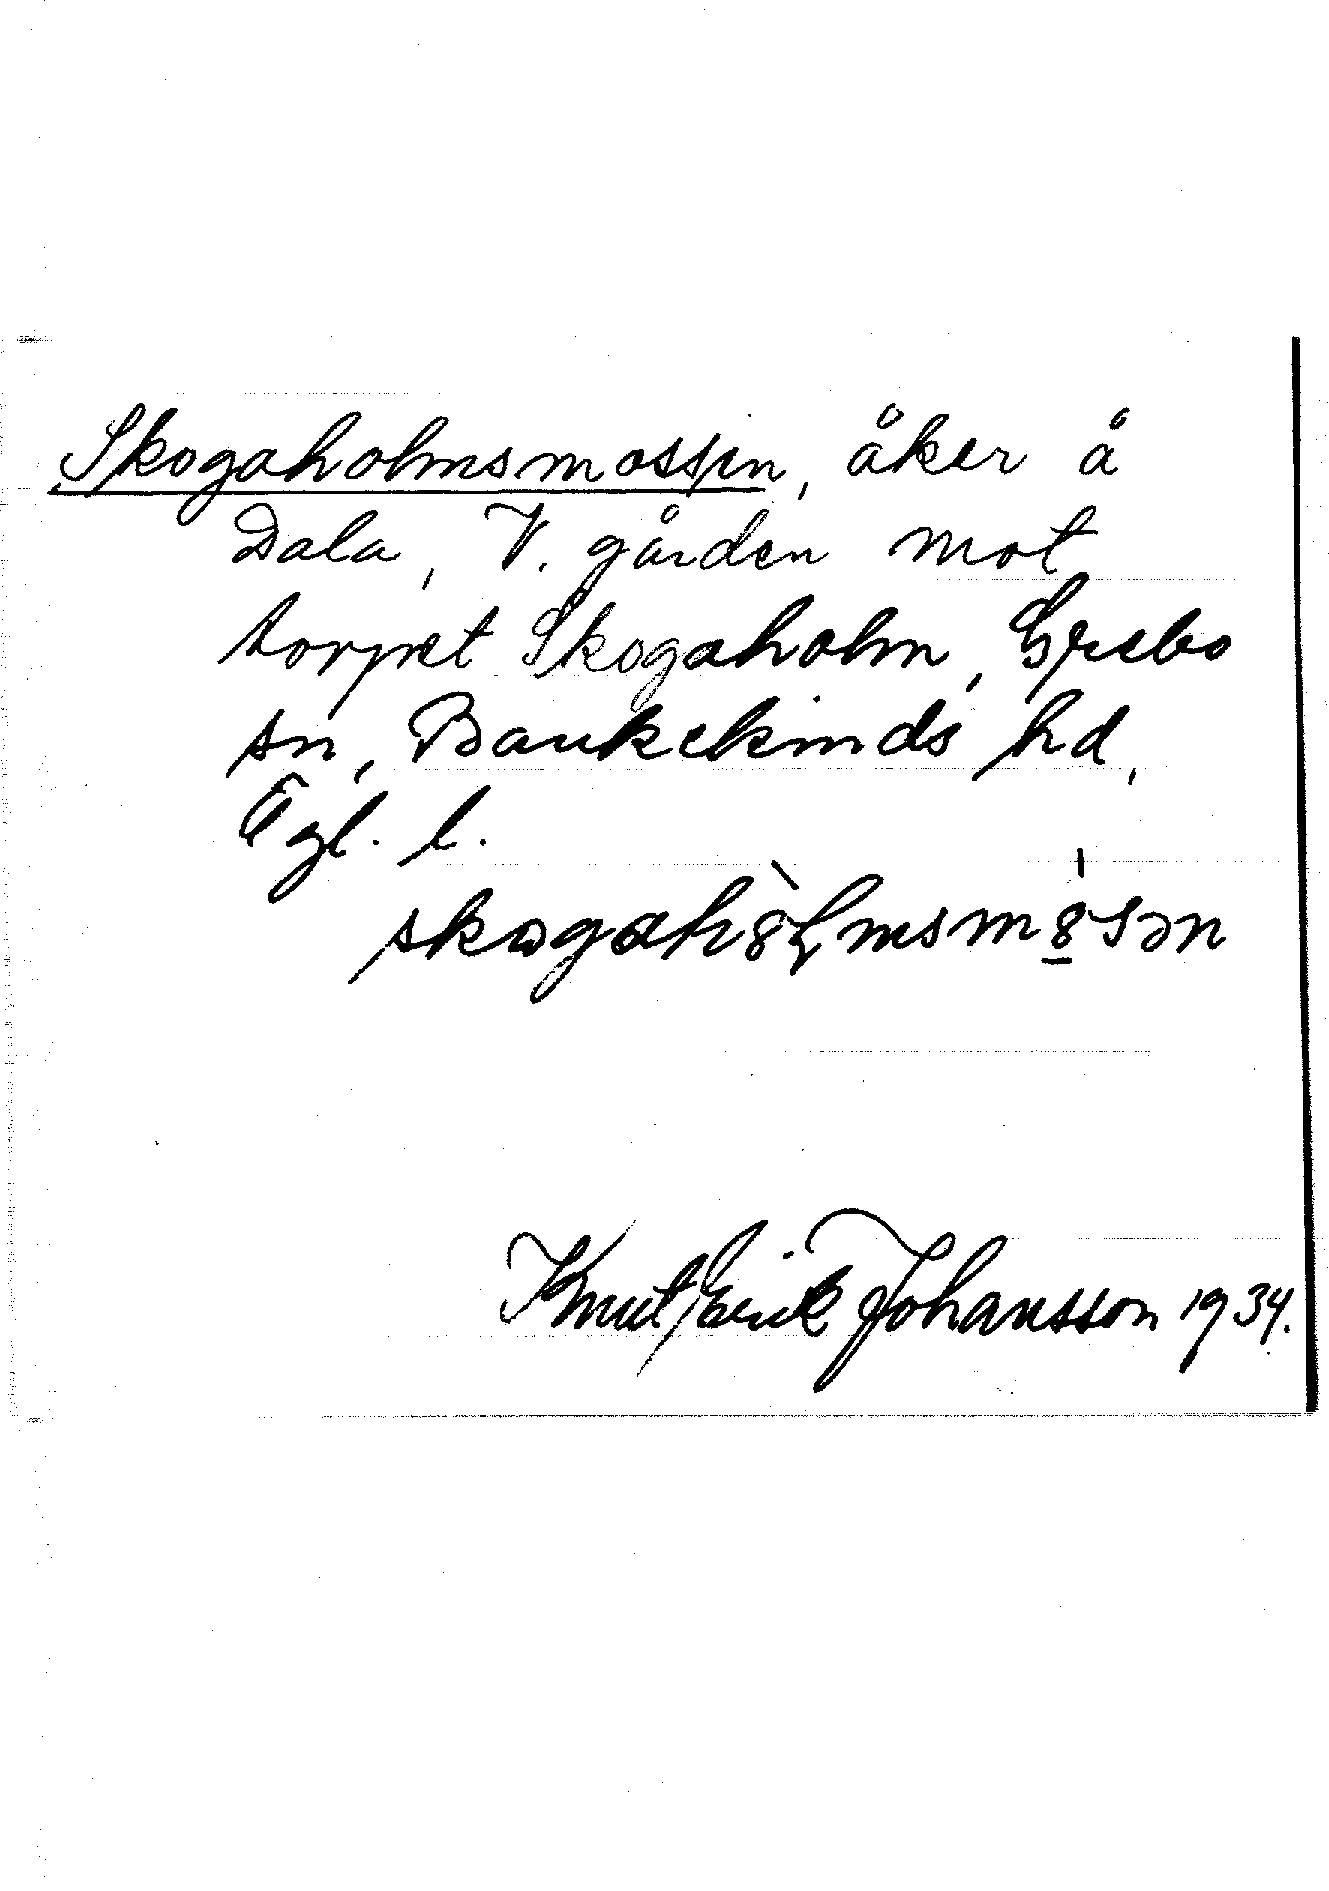 Skogaholmsmossen, åker å
Dala, V. gården mot
torpet Skogaholm, Grebo
sn, Bankekinds hd,
Ögl. l.
skogahòlmsmósən
Knut Erik Johansson 1934.